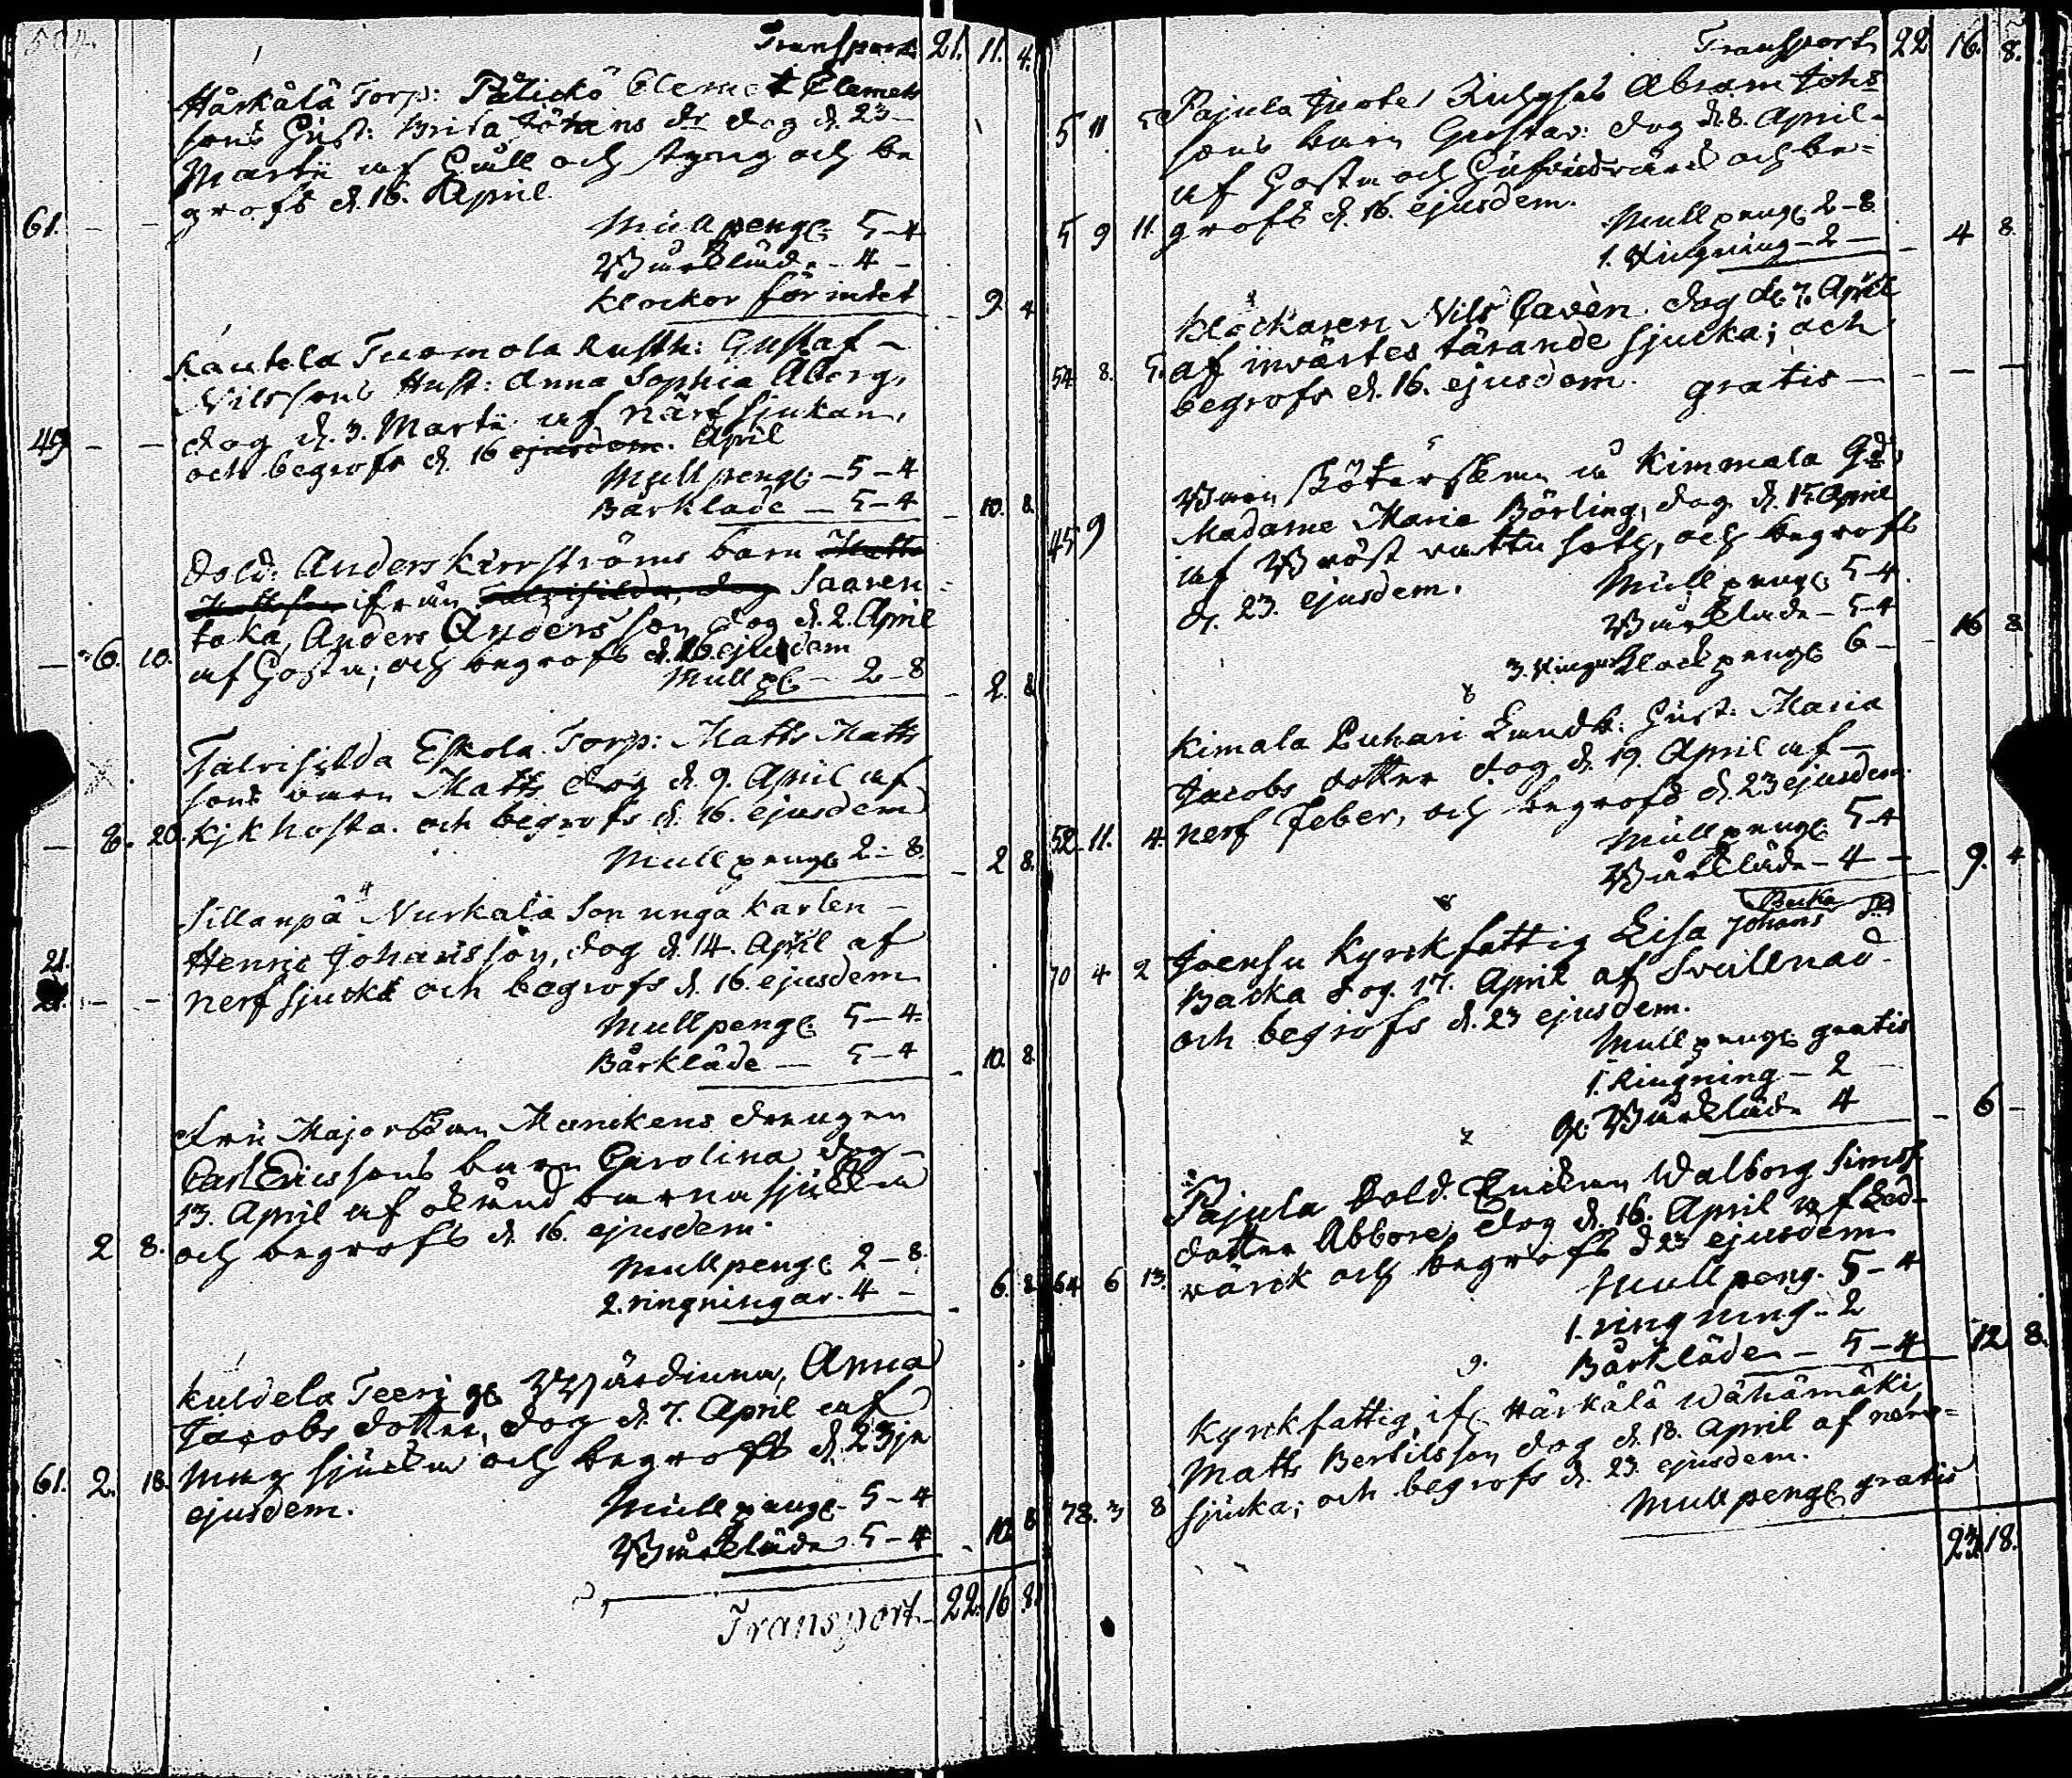 Transport 21. 11. 4.
Härkälä Torp: Påtickö Clemet Clemets
sons Hust: Brita Johans dr dog d. 23
Martii af Håll och styng och be
61. - - grofs d. 16. April
Mullpeng: 5-4
Bårkläde - 4 -
Klockor för intet - 9. 4
Kautela Tuomola Rusth: Gustaf
Nilssons Hust: Anna Sophia Åberg,
dog d. 3. Martii af närfsjukan,
49 - - och begrofs d. 16 ejusdem. April
Mullpeng: - 5-4
Bårkläde - 5-4 - 10. 8.
Sold: Anders Kirrströms barn Matts
ifrån Talvisilda, dog Saaren
taka, Anders Andersson, dog d. 2. April
- 6. 10. af Hosta; och begrofs d. 16. ejusdem
Mull p: - 2-8 - 2. 8
Talvisilda Eskola Torp: Matts Matts
sons barn Matts dog d. 9. April af
- 8. 20. kjkhosta. och begrofs d. 16. ejusdem
Mullpeng: 2-8. - 2 8.
Sillanpä Nurkala Son unga karlen
21. Henric Johansson, dog d. 14. April af
21. - - nerfsjucka och begrofs d. 16. ejusdem
Mullpeng: 5-4.
Bårkläde - 5-4 - 10. 8.
Fru Majorskan Munckens drengen
Carl Ericssons barn Carolina dog
13. April af okänd barnasjukka
2 8. och begrofs d. 16. ejusdem.
Mullpeng: 2-8.
2. ringningar. 4 - - 6. 8
Kuldela Teeri g: Wärdinna, Anna
Jacobs dotter, dog d. 7. April af
61. 2. 18. sjucka och begrofs d. 23je
ejusdem.
Mullpeng: 5-4
Bårkläde 5-4 - 10. 8
Transport - 22. 16 8.
Transport 22 16. 8.
5 11 5 Pajula Abram Johs
sons barn Gustav: dog d. 8. April
af Hosta och Hufvudvärck och be=
5 9 11. grofs d. 16. ejusdem.
Mullpeng: 2-8
1. Ringning - 2 - - 4 8.
Klåckaren Nils Cavèn. dog d. 7. April
54. 8. 5. af invärtes tärande sjucka; och
begrofs d. 16. ejusdem. gratis - - - -
Barn sköterskan å Kimmala Gd.
45 9 Madame Maria Börling, dog d. 15. April
af Bröst vattu soth, och begrofs
d. 23. ejusdem.
Mullpeng: 5-4.
Bårkläde - 5-4
3. Ringn: Klockpeng: 6 - - 16 8
Kimala Puhari Landb: Hust: Maria
Jacobs dotter dog d. 19. April af
52. 11. 4. nerf Feber, och begrofs d. 23 ejusdem.
Mullpeng: 5-4
Bårkläde - 4 - - 9. 4
Joensu Kyrckfattig Lisa Johans Dr
70 4 2 Backa dog. 17. April af Svullnad
och begrofs d. 23 ejusdem.
Mullpeng: gratis
1. Ringning - 2
g: Bårkläde 4 - 6 -
Pajula Sold. Enckan Walborg Sims
dotter Abbore, dog d. 16. April af Led-
64 6 13. värck och begrofs d 23 ejusdem
Mullpeng. 5-4
1. ringning - 2
9. Bårkläde - 5-4 12 8.
Kyrckfattig, if: Härkälä Wähämäki,
Matts Bertilsson dog d. 18. April af nerv=
78. 3 8 sjucka; och begrofs d. 23. ejusdem.
Mullpeng: gratis
23. 18.